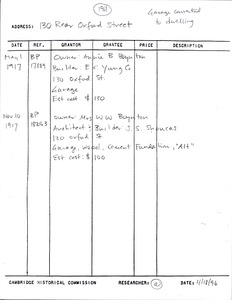 (38)
ADDRESS: 130 Rear Oxford Street
Garage converted
to dwelling
DATE REF. GRANTOR GRANTEE PRICE DESCRIPTION
May 1 BP Owner Annie B Boynton
1917 Builder: E. Young Co
130 Oxford St.
Garage
Est cost: $ 150
Nov 10 BP Owner Mrs W W Boynton
1917 Architect & Builder J. S.
130 Oxford St
Garage, wood, cement Foundation, "Alt"
Est cost: $100
CAMBRIDGE HISTORICAL COMMISSION RESEARCHER: DATE: 4/18/96